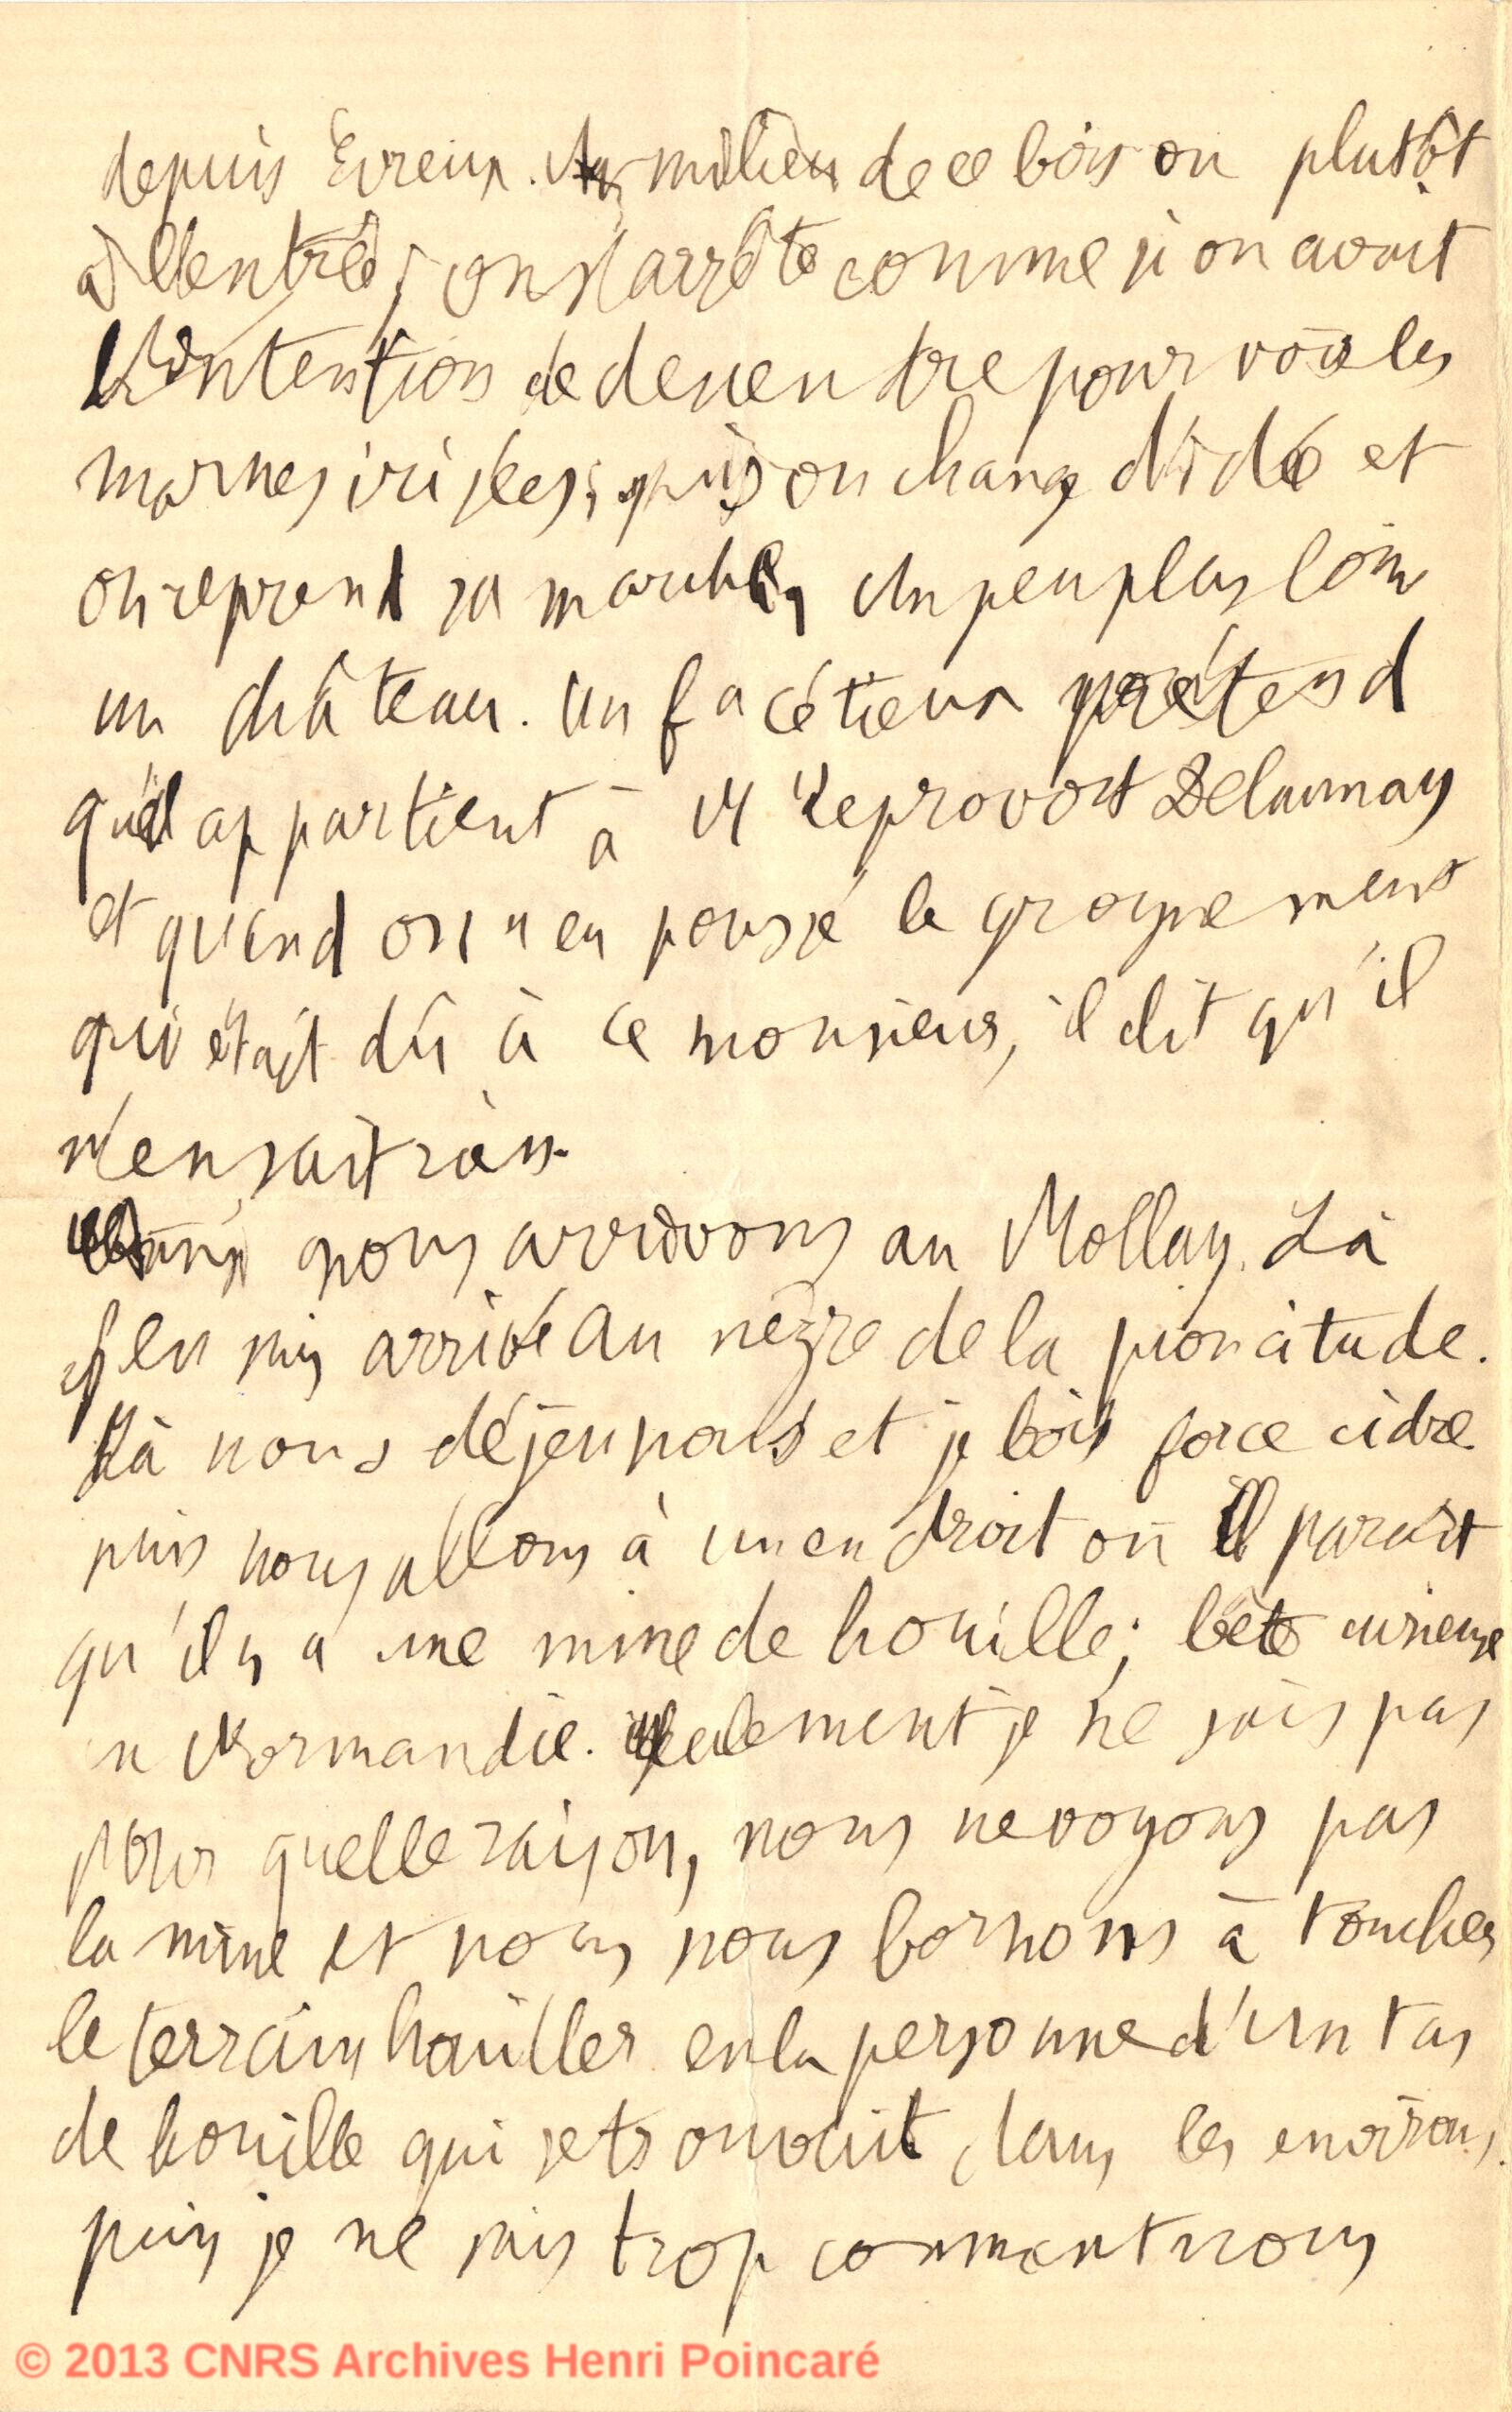 depuis Evreux. Au milieu de ce bois ou plutôt
à l'entrée, on s'arrête comme si on avait
l'intention de descendre pour voir les
marnes irisées; puis on change d'idée et
on reprend sa marche, Un peu plus loin
un château. Un facétieux prétend
qu'il appartient à M Leprovost Delaunay
et quand on en pousse le grognement
qui était dû à ce monsieur, il dit qu'il
n'en sait rien.
nous arrivons au Mollay. Là
j'en suis arrivé au nègre de la pioncitude.
Là nous déjeunons et je bois force cidre
puis nous allons à un endroit où il paraît
qu'il y a une mine de houille; bête curieuse
en Normandie. Seulement je ne sais pas
pour quelle raison, nous ne voyons pas
la mine et nous nous bornons à toucher
le terrain houiller en la personne d'un tas
de houille qui se trouvait dans les environs.
puis je ne sais trop comment nous
© 2013 CNRS Archives Henri Poincaré